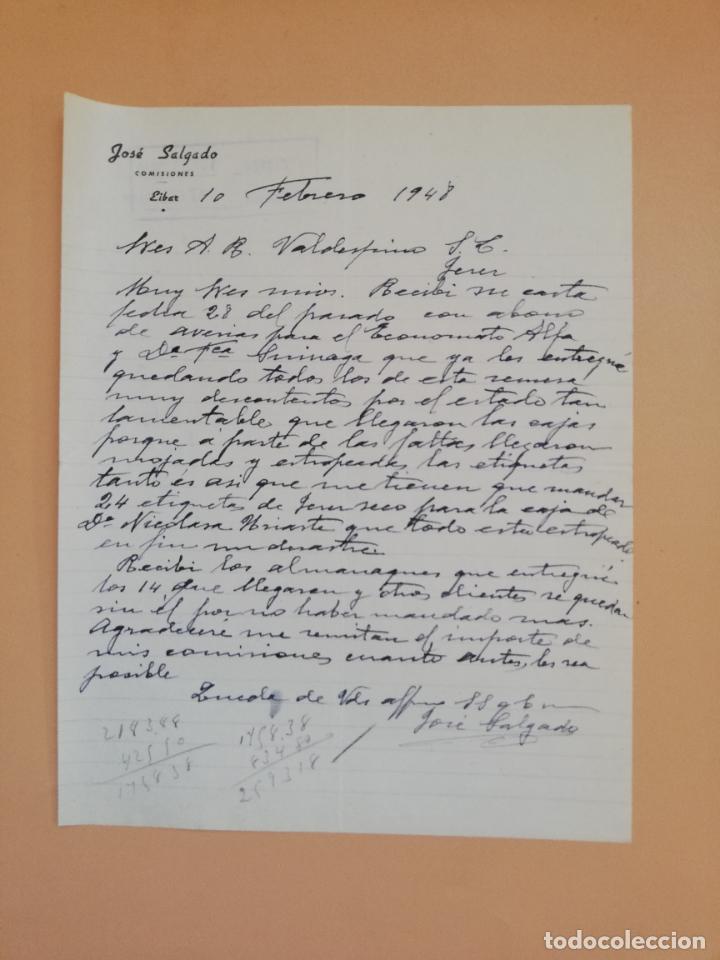 José Salgado
COMISIONES
Eibar 10 Febrero 1948
Sres A. R. Valdespino S. C.
Jerez
Muy Sres mios. Recibi su carta
fecha 28 del pasado con abono
de averias para el Economato Alfa
y Dª Fca que ya les entregué
quedando todos los de esta remesa
muy descontentos por el estado tan
lamentable que llegaron las cajas
porque á parte de las faltas llegaron
mojadas y estropeadas las etiquetas
tanto es asi que me tienen que mandar
24 etiquetas de Jerez seco para la caja de
Dª Nicolasa Uriarte que todo esta estropeado
en fin un desastre
Recibi los almanaques que entregué
los 14 que llegaron y otros clientes se quedan
sin él por no haber mandado mas.
Agradeceré me remitan el importe de
mis comisiones cuanto antes les sea
posible
Queda de Vds affmo SS
José Salgado
2183,88
425 50
1758 38
1758,38
834 80
2593 18
todocoleccion